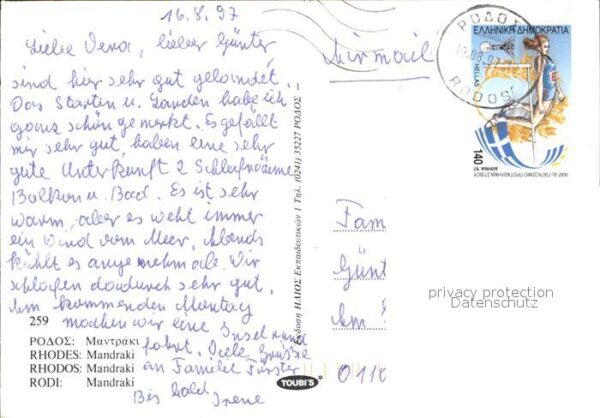 16.8.97
Liebe Vera, lieber Günter
sind hier sehr gut gelandet.
Das Starten u. Landen habe ich
ganz schön gemerkt. Es gefällt
mir sehr gut, haben eine sehr
gute Unterkunft 2 Schlafräume
Balkon u. Bad. Es ist sehr
warm, aber es weht immer
ein Wind vom Meer. Abends
kühlt es angenehm ab. Wir
schlafen dadurch sehr gut.
Am kommenden Montag
machen wir eine Inselrund
fahrt. Viele Grüße
an Familie Förster
Bis bald Irene
259
ΡΟΔΟΣ: Μαντράκι
RHODES: Mandraki
RHODOS: Mandraki
RODI: Mandraki
Έκδοση ΗΛΙΟΣ Εκπαιδευτικών 1 Τηλ. (0241) 35227 ΡΟΔΟΣ
TOUBI'S
Airmail
ΡΟΔΟΣ
RODOS
ΕΛΛΗΝΙΚΗ ΔΗΜΟΚΡΑΤΙΑ
HELLAS
140
ΑΘΗΝΑ '97
Fam
Günt
Am
privacy protection
Datenschutz